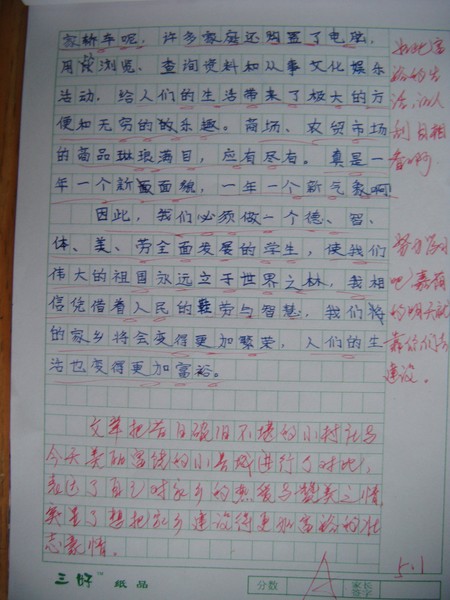 家轿车呢，许多家庭还购置了电脑，
用于浏览、查询资料和从事文化娱乐
活动，给人们的生活带来了极大的方
便和无穷的的乐趣。商场、农贸市场
的商品琳琅满目，应有尽有。真是一
年一个新面貌，一年一个新气象啊！
因此，我们必须做一个德、智、
体、美、劳全面发展的学生，使我们
伟大的祖国永远立于世界之林，我相
信凭借着人民的勤劳与智慧，我们
的家乡将会变得更加繁荣，人们的生
活也变得更加富裕。
如此富
裕的生
活，让人
刮目相
看啊
努力学习
吧！嘉荫
的明天就
靠你们去
建设。
文章把昔日破旧不堪的小村社与
今天美丽富饶的小县城进行了对比，
表达了自己对家乡的热爱与赞美之情，
突显了想把家乡建设得更加富裕的壮
志豪情。
三好 纸品
分数
A
家长
签字
5.1